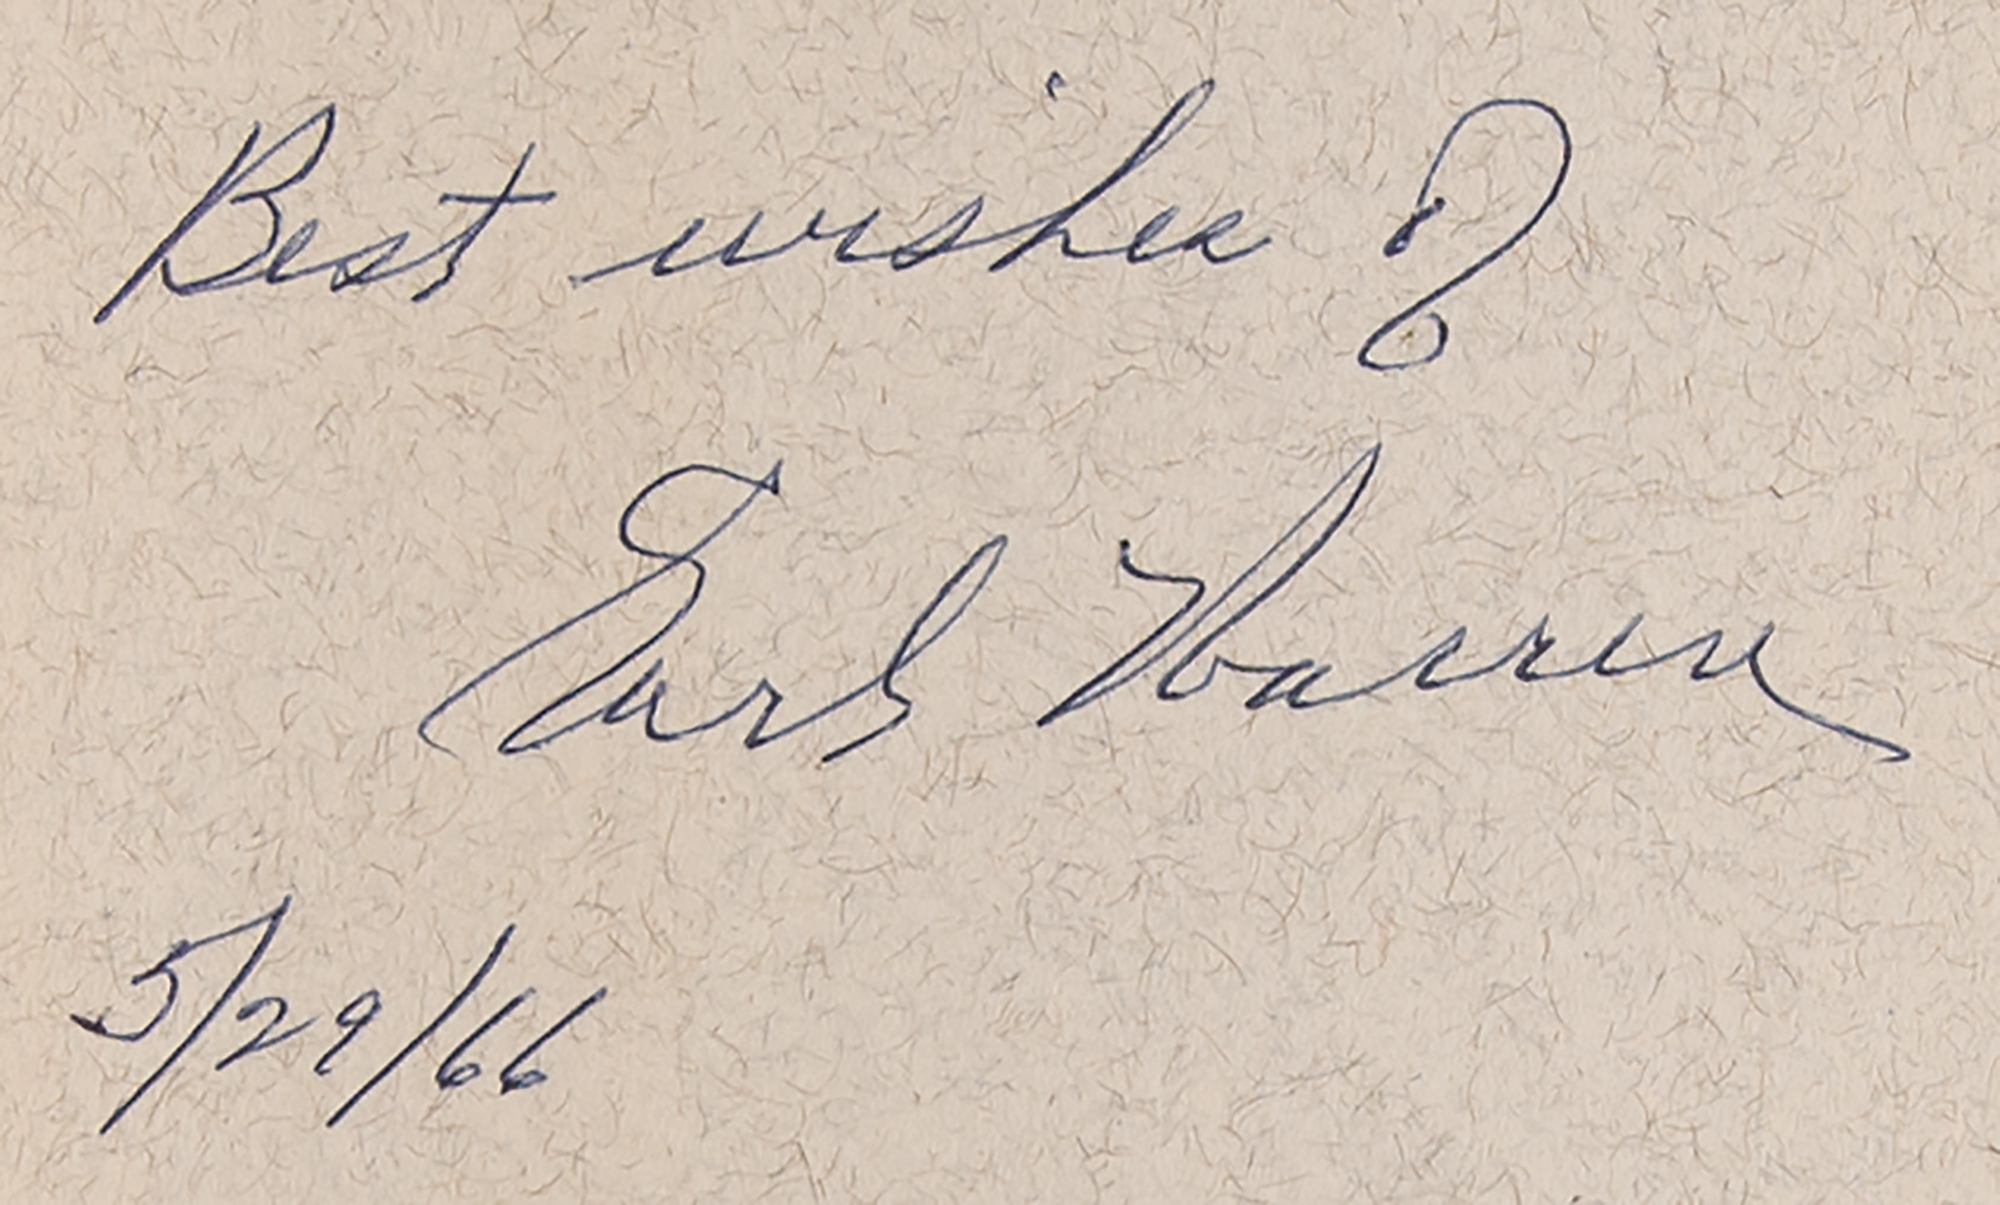 Best wishes of
Earl Warren
5/29/66